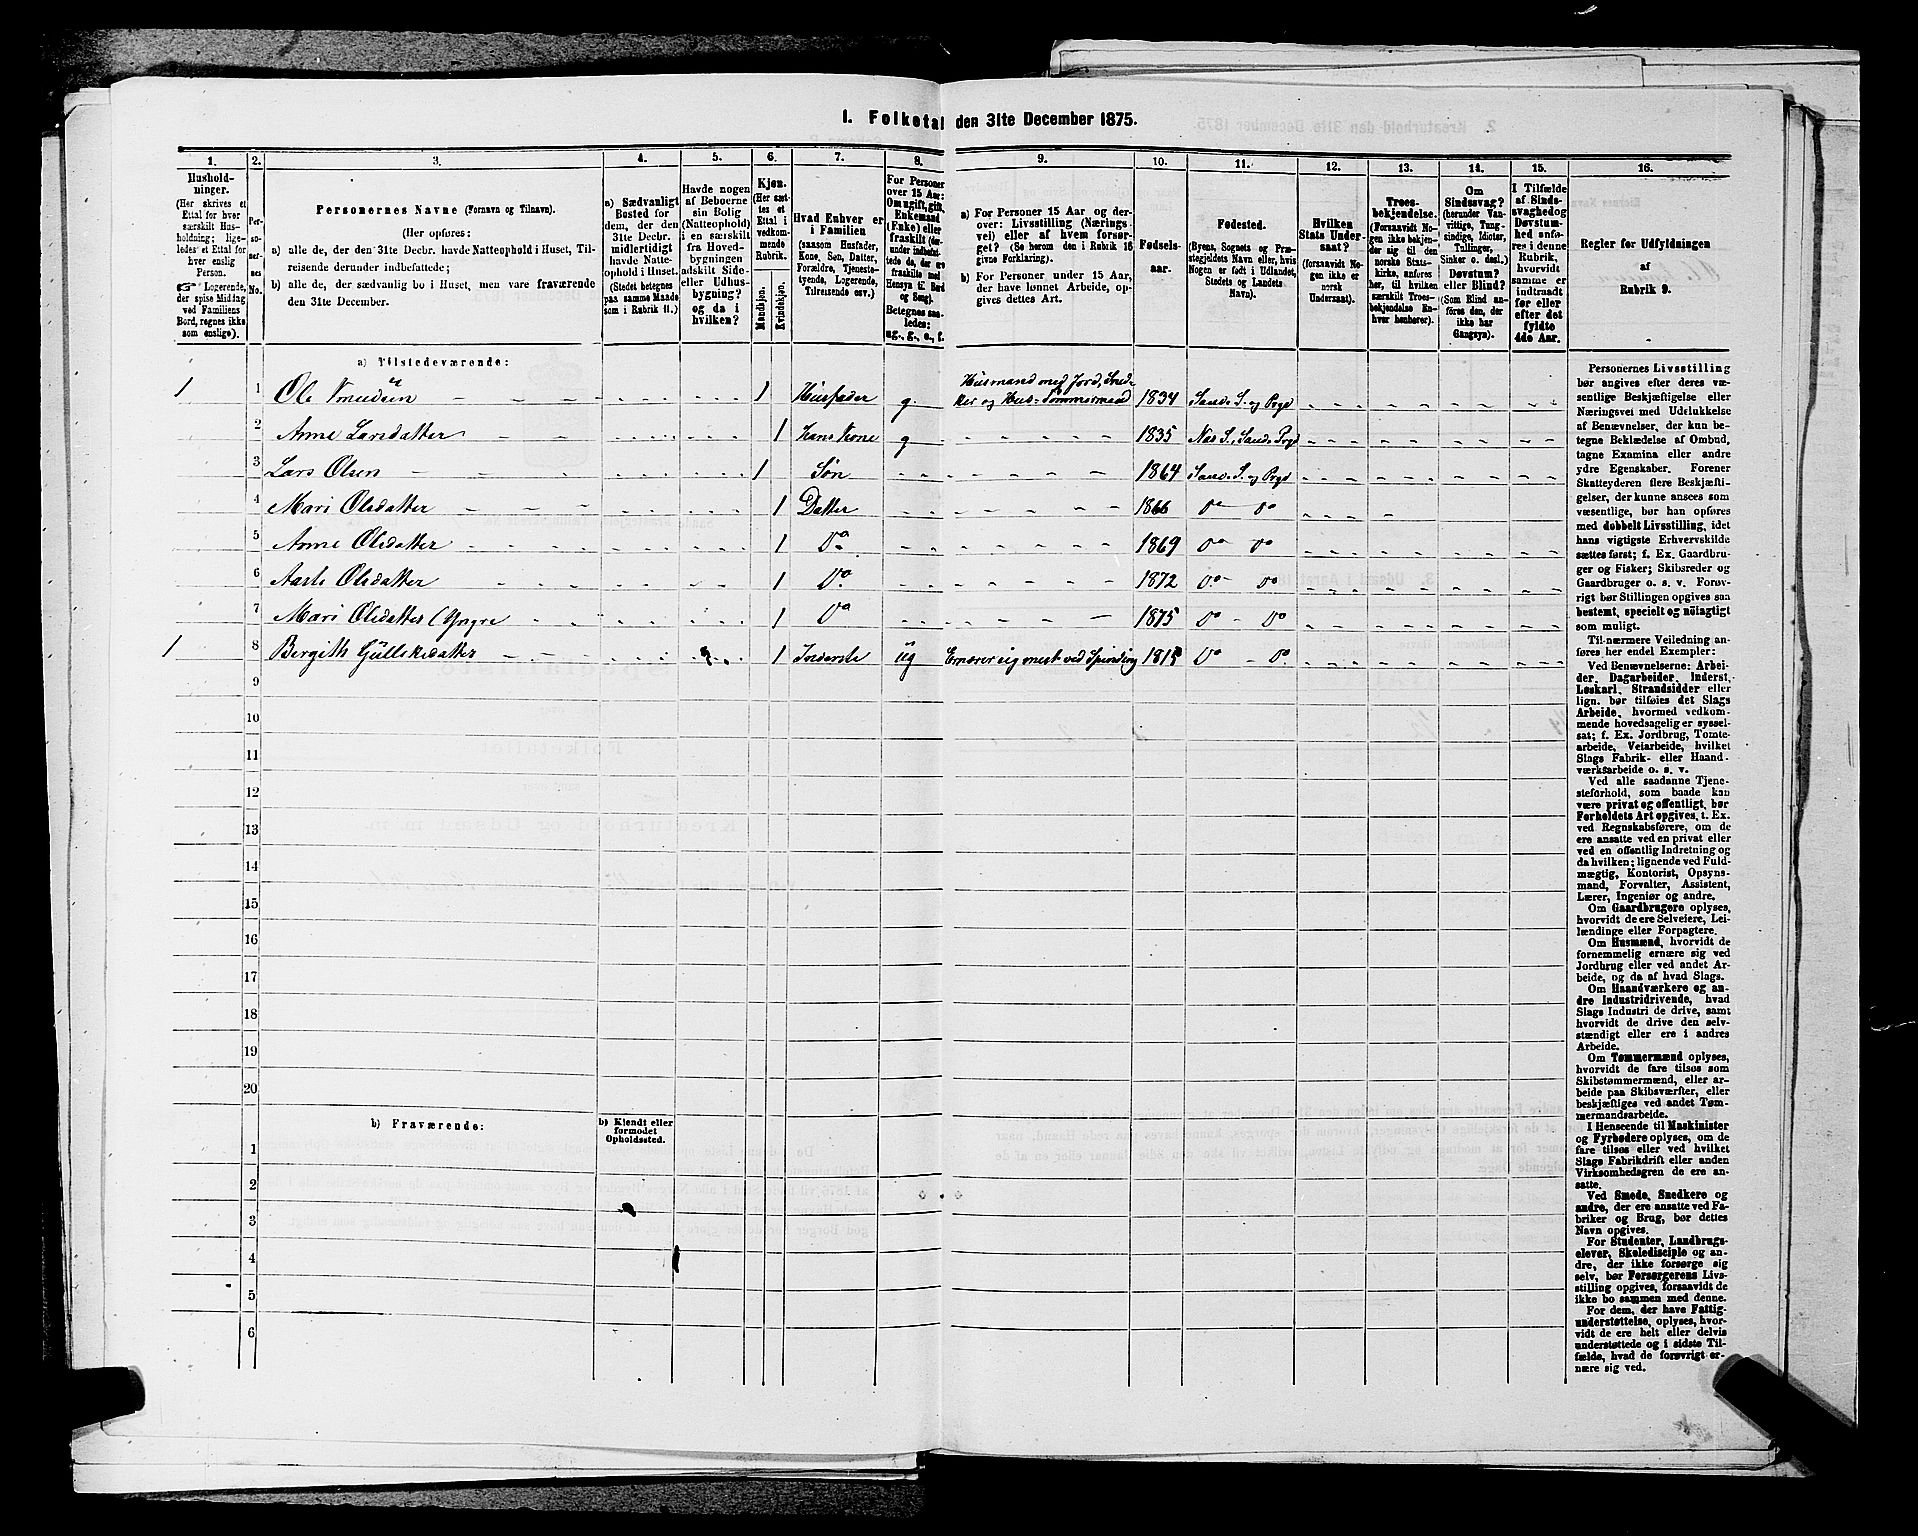 1. Folketal den 31te December 1875.
1. 2. 3. 4. 5. 6. 7. 8. 9. 10. 11. 12. 13. 14. 15. 16.
Hushold-
ninger.
(Her skrives et
Ettal for hver
særskilt Hus-
holdning; lige-
ledes et Ettal for
hver enslig
Person.
☞ Logerende,
der spise Middag
ved Familiens
Bord, regnes ikke
som enslige).
Per-
so-
ner-
nes
No.
Personernes Navne (Fornavn og Tilnavn).
(Her opføres:
a) alle de, der den 31te Decbr. havde Natteophold i Huset, Til-
reisende derunder indbefattede;
b) alle de, der sædvanlig bo i Huset, men vare fraværende
den 31te December.
a) Sædvanligt
Bosted for
dem, der den
31te Decbr.
midlertidigt
havde Natte-
ophold i Huset.
(Stedet betegnes
paa samme Maade
som i Rubrik 11.)
Havde nogen
af Beboerne
sin Bolig
(Natteophold)
i en særskilt
fra Hoved-
bygningen
adskilt Side-
eller Udhus-
bygning?
og da i
hvilken?
Kjøn.
(Her sæt-
tes et
Ettal i
vedkom-
mende
Rubrik.
Mandkjøn.
Kvindekjøn.
Hvad Enhver er
i Familien
(saasom Husfader,
Kone, Søn, Datter,
Forældre, Tjeneste-
tyende, Logerende,
Tilreisende osv.)
For Personer
over 15 Aar:
Om ugift, gift,
Enkemand
(Enke) eller
fraskilt (der-
under indbefat-
tede de, der ere
fraskilte med
Hensyn til Bord
og Seng).
Betegnes saa-
ledes:
ug., g., e., f.
a) For Personer 15 Aar og der-
over: Livsstilling (Nærings-
vei) eller af hvem forsør-
get? (Se herom den i Rubrik 16
givne Forklaring).
b) For Personer under 15 Aar,
der have lønnet Arbeide, op-
gives dettes Art.
Fødsels-
aar.
Fødested.
(Byens, Sognets og Præ-
stegjeldets Navn eller, hvis
Nogen er født i Udlandet,
Stedets og Landets
Navn).
Hvilken
Stats Under-
saat?
(forsaavidt No-
gen ikke er
norsk
Undersaat).
Troes-
bekjendelse.
(Forsaavidt No-
gen ikke bekjen-
der sig til den
norske Stats-
kirke, anføres
her, til hvilken
særskilt Troes-
bekjendelse En-
hver henhører).
Om
Sindssvag?
(herunder Van-
vittige, Tung-
sindige, Idioter,
Tullinger,
Sinker o. desl.)
Døvstum?
eller Blind?
(Som Blind an-
føres den, der
ikke har
Gangsyn).
I Tilfælde
af Sinds-
svaghed og
Døvstum-
hed anfø-
res i denne
Rubrik,
hvorvidt
samme er
indtraadt
før eller
efter det
fyldte
4de Aar.
Regler for Udfyldningen
af
Rubrik 9.
a) Tilstedeværende:
Husmand med Jord, Sned-
1 1 Ole Knudsen 1 Husfader g. ker og Hus-Tømmermand 1834 Sande S. og Prgd
2 Anne Larsdatter 1 Hans Kone g 1835 Næs S., Sande Prgd
3 Lars Olsen 1 Søn 1864 Sande S. og Prgd
4 Mari Olsdatter 1 Datter 1866 Do Do
5 Anne Olsdatter 1 Do 1869 Do Do
6 Aaste Olsdatter 1 Do 1872 Do Do
7 Mari Olsdatter (Yngre 1 Do 1875 Do Do
1 8 Bergith Gullsksdatter 1 Inderste ug Ernærer sig mest ved Spinding 1815 Do Do
9
10
11
12
13
14
15
16
17
18
19
20
b) Fraværende:
b) Kjendt eller
formodet
Opholdssted.
1
2
3
4
5
6
Personernes Livsstilling
bør angives efter deres væ-
sentlige Beskjæftigelse eller
Næringsvei med Udelukkelse
af Benævnelser, der kun be-
tegne Beklædelse af Ombud,
tagne Examina eller andre
ydre Egenskaber. Forener
Skatteyderen flere Beskjæfti-
gelser, der kunne ansees som
væsentlige, bør han opføres
med dobbelt Livsstilling, idet
hans vigtigste Erhvervskilde
sættes først; f. Ex. Gaardbru-
ger og Fisker; Skibsreder og
Gaardbruger o. s. v. Forøv-
rigt bør Stillingen opgives saa
bestemt, specielt og nøiagtigt
som muligt.
Til nærmere Veiledning an-
føres her endel Exempler:
Ved Benævnelserne: Arbei-
der, Dagarbeider, Inderst,
Løskarl, Strandsidder eller
lign. bør tilføies det Slags
Arbeide, hvormed vedkom-
mende hovedsagelig er syssel-
sat; f. Ex. Jordbrug, Tomte-
arbeide, Veiarbeide, hvilket
Slags Fabrik- eller Haand-
værksarbeide o. s. v.
Ved alle saadanne Tjene-
steforhold, som baade kan
være privat og offentligt, bør
Forholdets Art opgives, f. Ex.
ved Regnskabsførere, om de
ere ansatte ved en privat eller
ved en offentlig Indretning og
da hvilken; lignende ved Fuld-
mægtig, Kontorist, Opsyns-
mand, Forvalter, Assistent,
Lærer, Ingeniør og andre.
Om Gaardbrugere oplyses,
hvorvidt de ere Selveiere, Lei-
lændinge eller Forpagtere.
Om Husmænd, hvorvidt de
fornemmelig ernære sig ved
Jordbrug eller ved andet Ar-
beide, og da af hvad Slags.
Om Haandværkere og an-
dre Industridrivende, hvad
Slags Industri de drive, samt
hvorvidt de drive den selv-
stændigt eller ere i andres
Arbeide.
Om Tømmermænd oplyses,
hvorvidt de fare tilsøs som
Skibstømmermænd, eller ar-
beide paa Skibsværfter, eller
beskjæftiges ved andet Tøm-
mermandsarbeide.
I Henseende til Maskinister
og Fyrbødere oplyses, om de
fare tilsøs eller ved hvilket
Slags Fabrikdrift eller anden
Virksomhedsgren de ere an-
satte.
Ved Smede, Snedkere og
andre, der ere ansatte ved Fa-
briker og Brug, bør dettes
Navn opgives.
For Studenter, Landbrugs-
elever, Skoledisciple og an-
dre, der ikke forsørge sig
selv, bør Forsørgerens Livs-
stilling opgives, forsaavidt de
ikke bo sammen med denne.
For dem, der have Fattig-
understøttelse, oplyses, hvor-
vidt de ere helt eller delvis
understøttede og i sidste Til-
fælde, hvad de forøvrigt er-
nære sig ved.